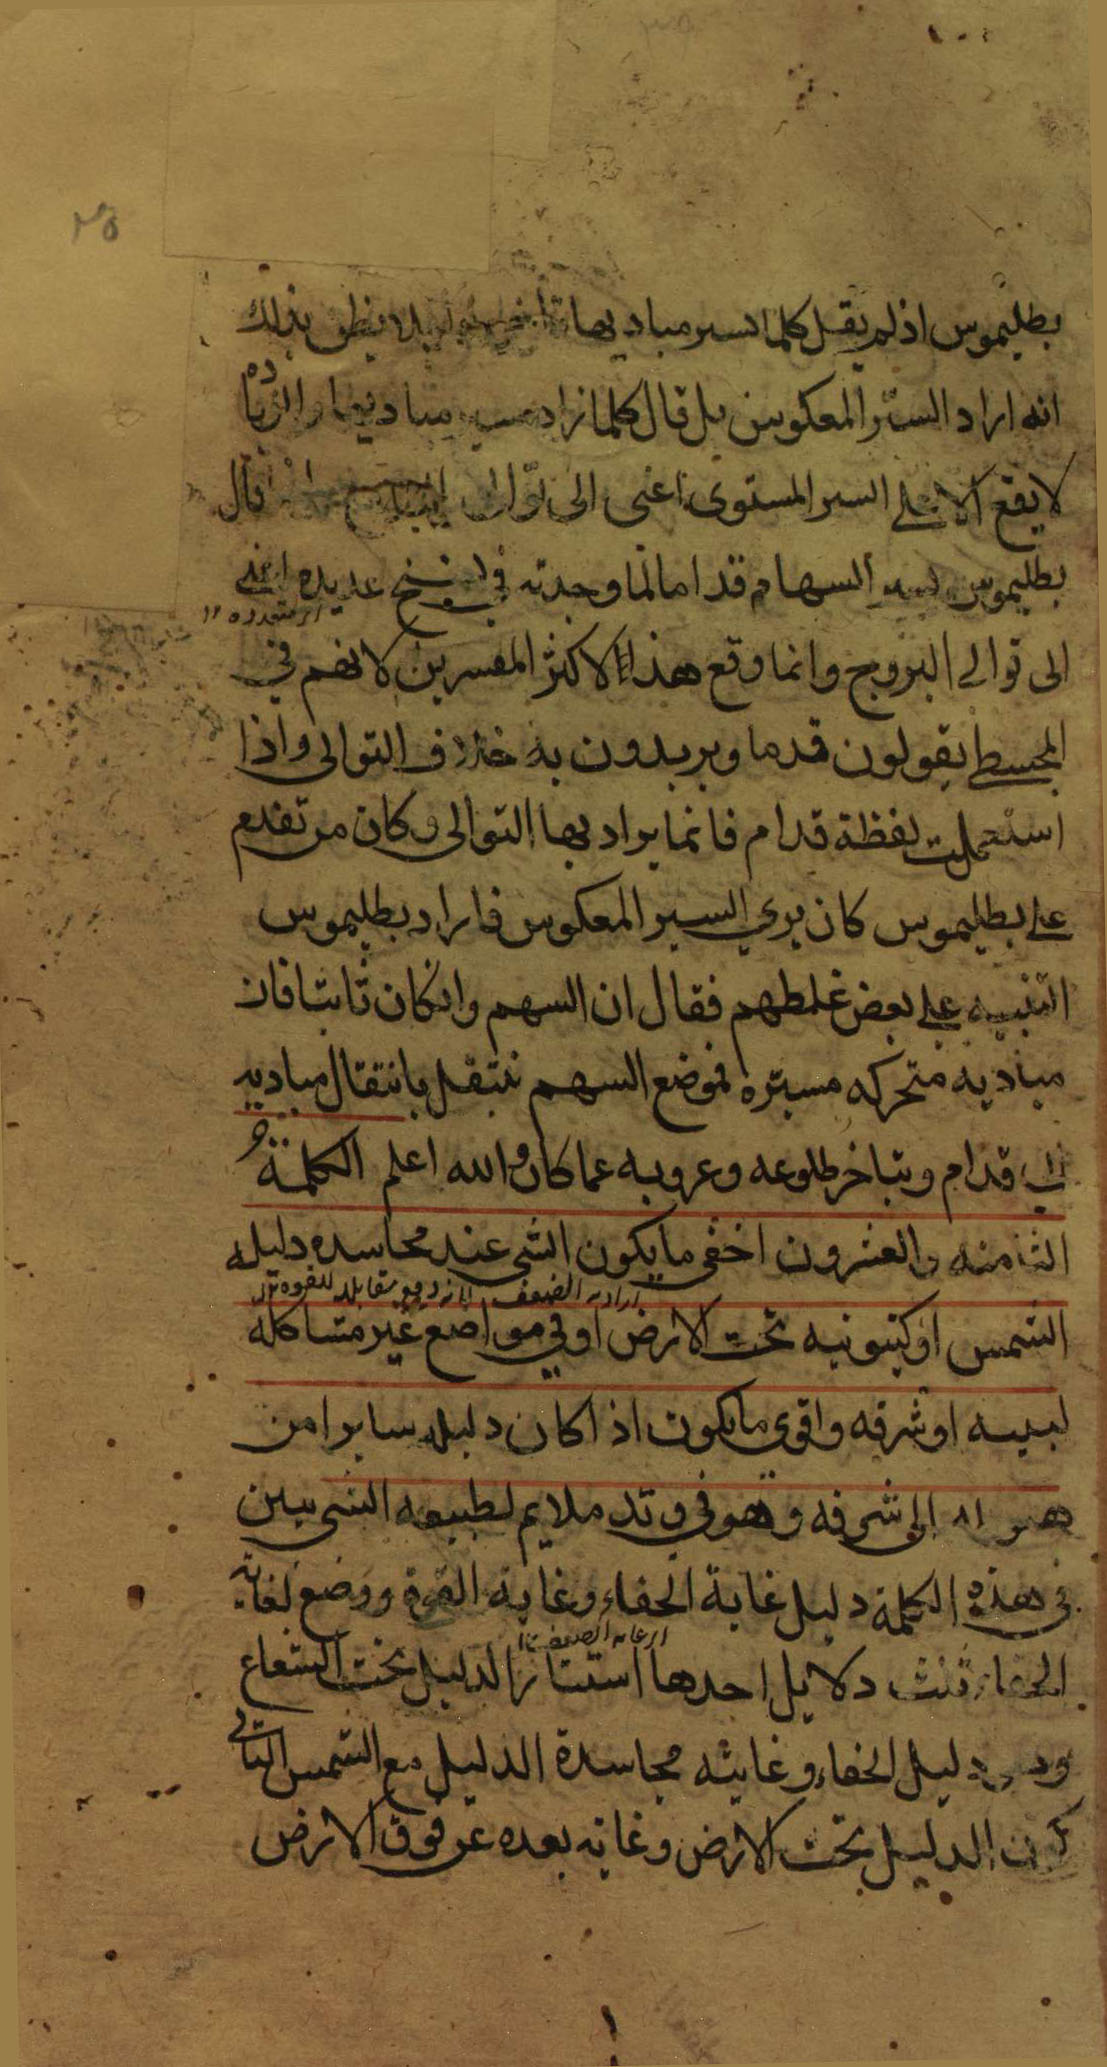 ٣٥
بطليموس اذ لم يقل كلما السير مباديها لئلا يظن بذلك
انه اراد السير المعكوس بل قال كلما ازاد مباديها الزيادة
لا يقع الا على السير المستوى اعنى الى توالى قال
بطليموس السهام قداما لما وجدته في نسخ عديده اعنى
اى متعدده ١٢
الى توالى البروج وانما وقع هذا لاكثر المفسرين لانهم في
المجسطى يقولون قدما ويريدون به خلاف التوالى واذا
استعملت لفظة قدام فانما يراد بها التوالى وكان من تقدم
على بطليموس كان يرى السير المعكوس فاراد بطليموس
التنبيه على بعض غلطهم فقال ان السهم وانكان ثابتا فان
مباديه متحركه مسيره فموضع السهم ينتقل بانتقال مباديه
الى قدام ويتاخر طلوعه وغروبه عما كان والله اعلم الكلمة
الثامنه والعشرون اخفى ما يكون الشى عند مجاسده دليله
اراد به الضعف لانه وقع مقابله للقوه
الشمس او كينونيه تحت الارض او في مواضع غير مشاكله
لبيته او شرفه واقوى ما يكون اذا كان دليله سايرا من
الى شرفه وهو في وتد ملايم لطبيعه الشى يبين
في هذه الكلمة دليل غاية الخفاء وغاية القوة ووضع لغاية
اى غايه الضعف ١٢
الخفاء ثلث دلايل احدها استتار الدليل تحت الشعاع
دليل الخفاء وغايته مجاسدة الدليل مع الشمس الثانى
كون الدليل تحت الارض وغايه بعده عن فوق الارض